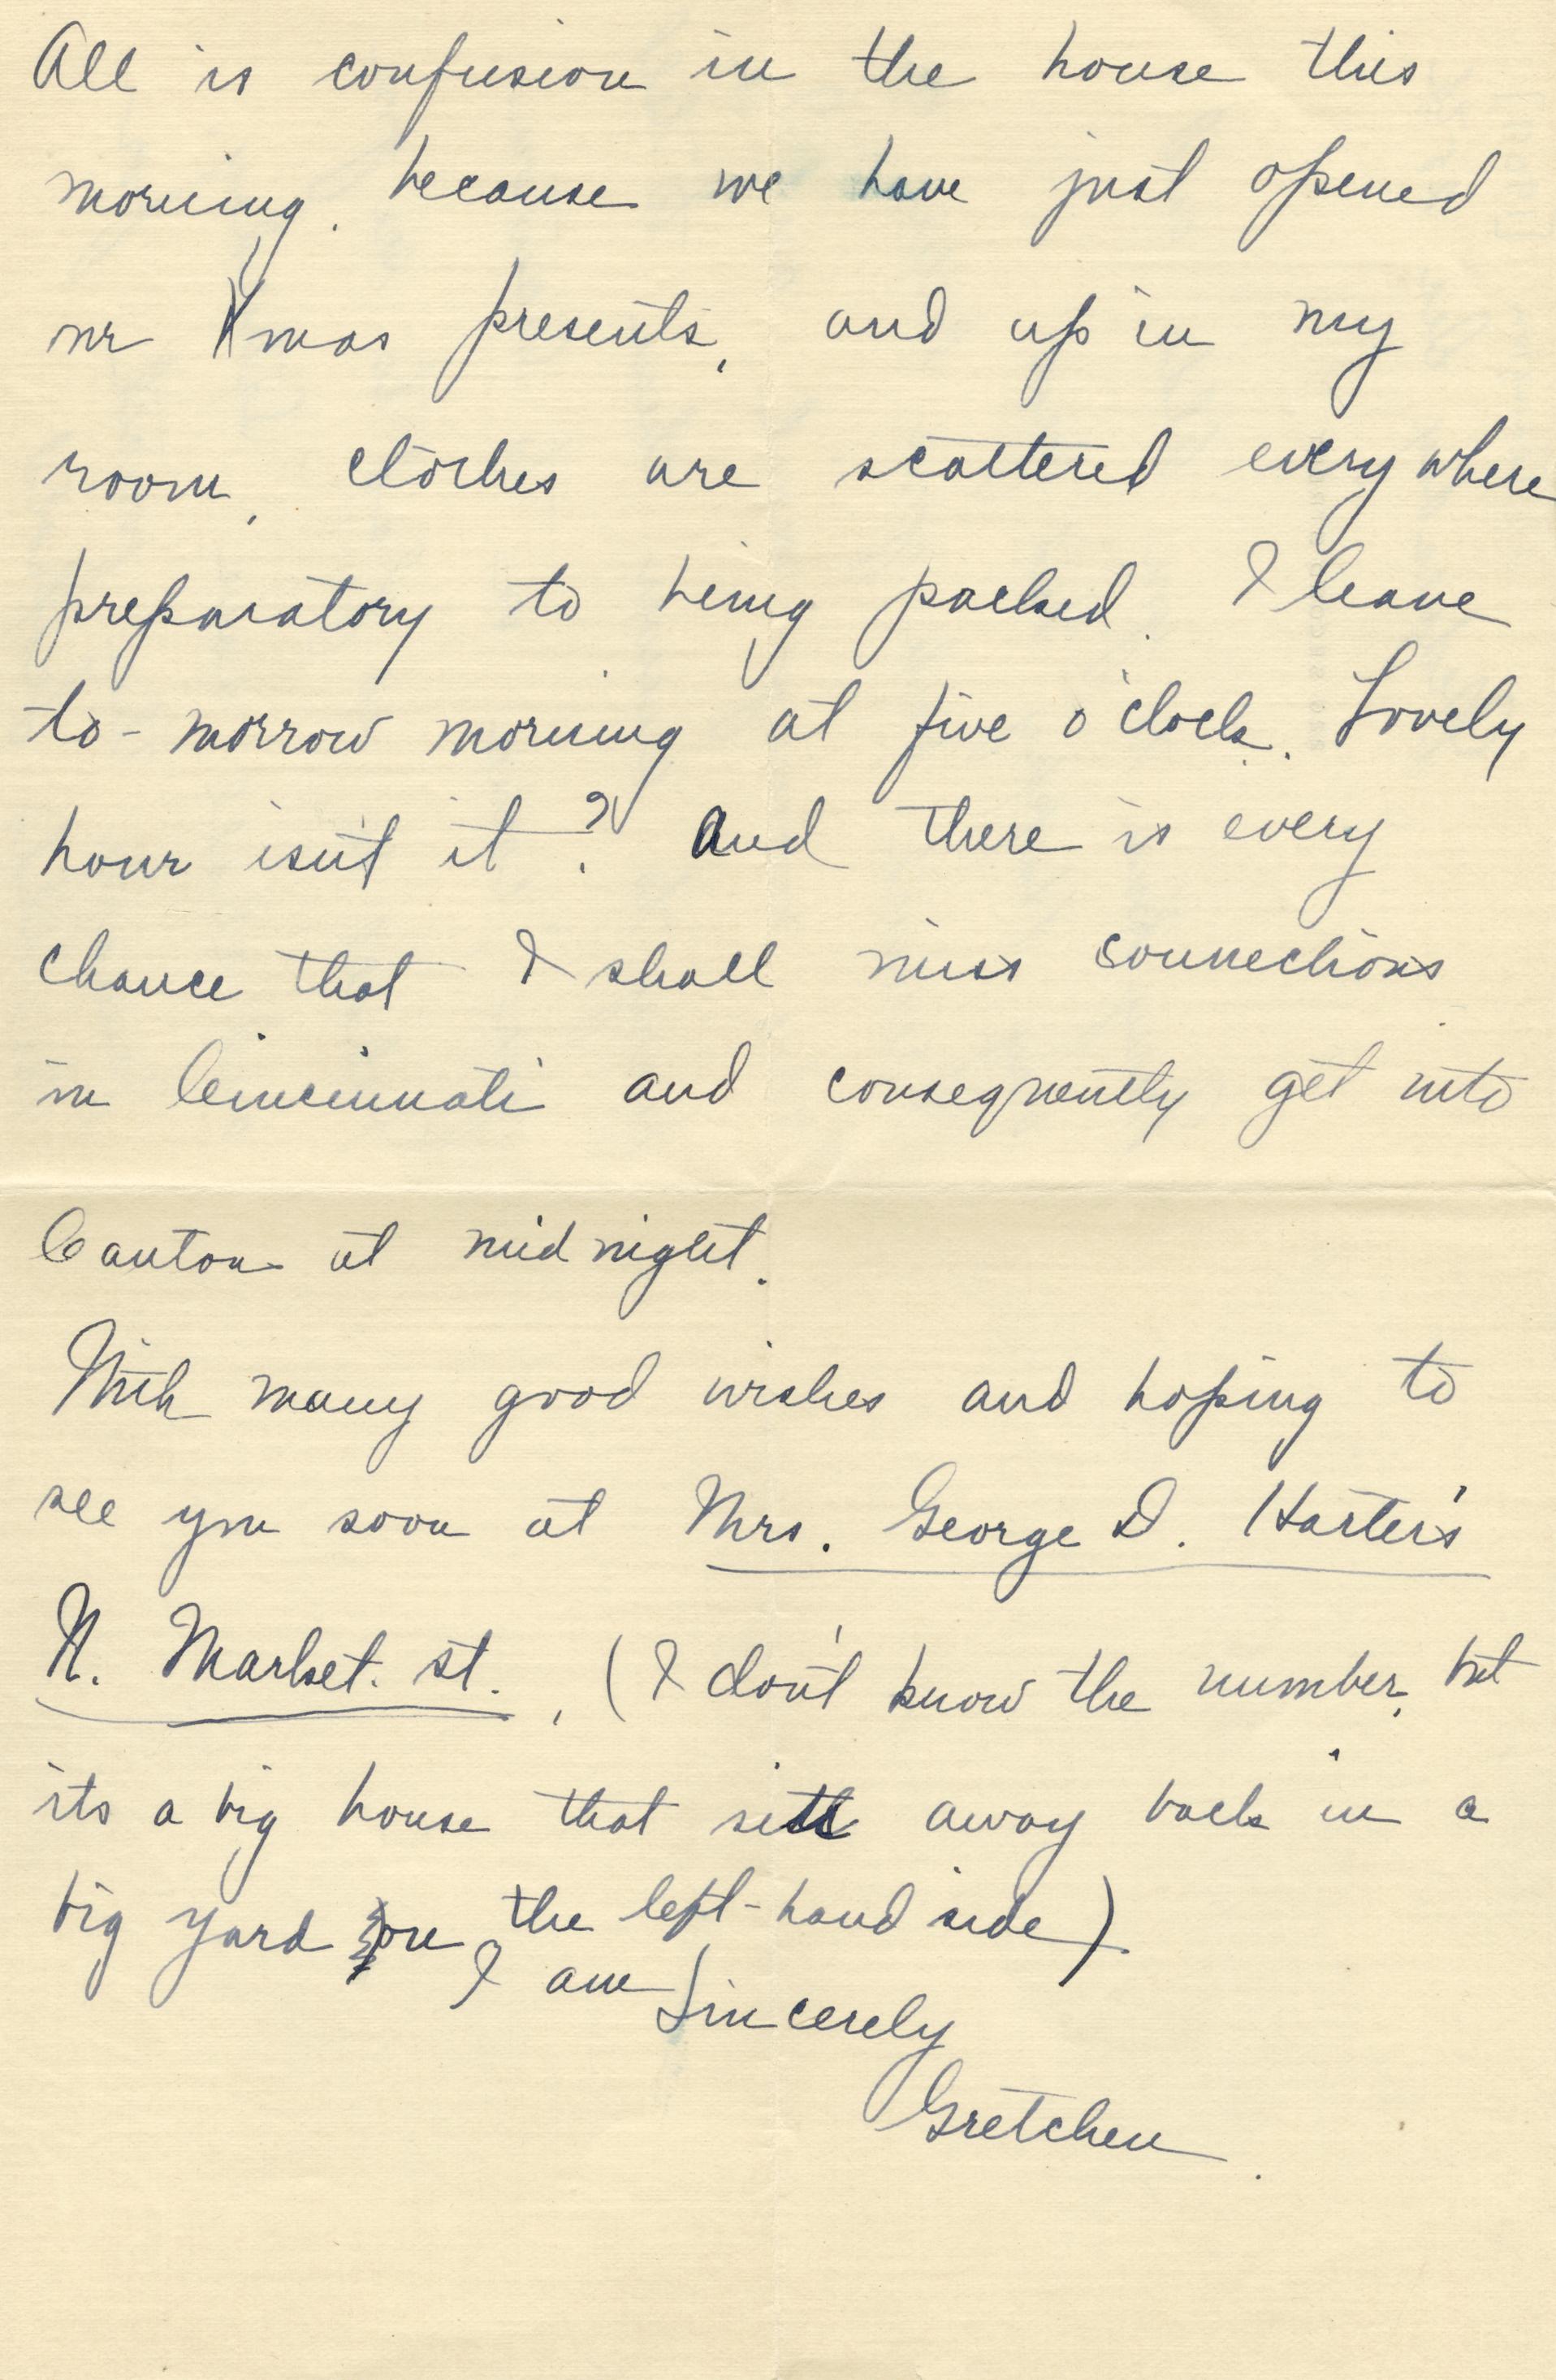 All is confusion in the house this
morning. because we have just opened
our Xmas presents, and up in my
room, clothes are scattered every where
preparatory to being packed. I leave
to-morrow morning at five o'clock. Lovely
hour isn't it? And there is every
chance that I shall miss connections
in Cincinnati and consequently get into
Canton at midnight.
With many good wishes and hoping to
see you soon at Mrs. George D. Harter's
N. Market. st., (I don't know the number, but
its a big house that sits away back in a
big yard on the left-hand side)
I am Sincerely
Gretchen.